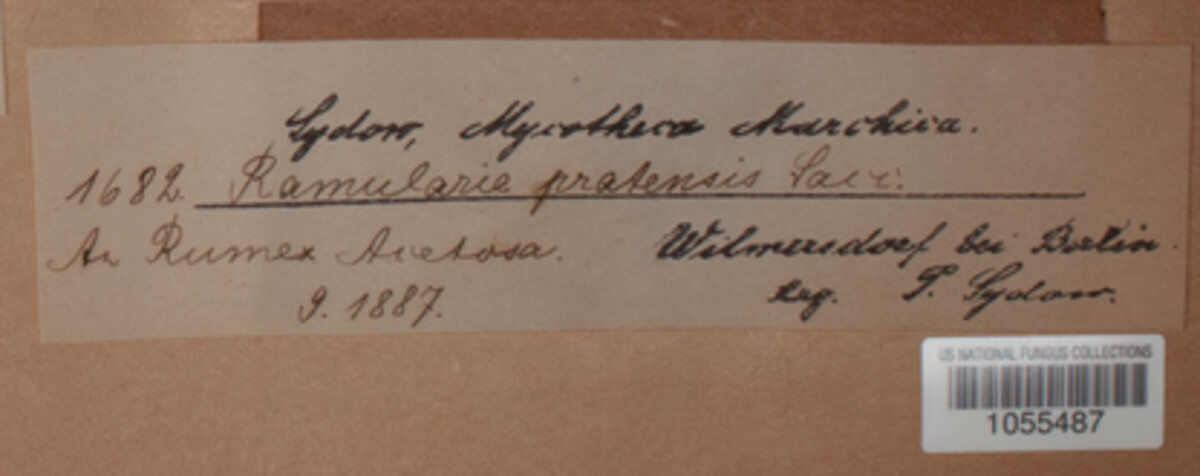 Sydow, Mycotheca Marchica.
1682. Ramularia pratensis Sacc.
An Rumex Acetosa. Wilmersdorf bei Berlin.
9. 1887. leg. P. Sydow.
US NATIONAL FUNGUS COLLECTIONS
1055487